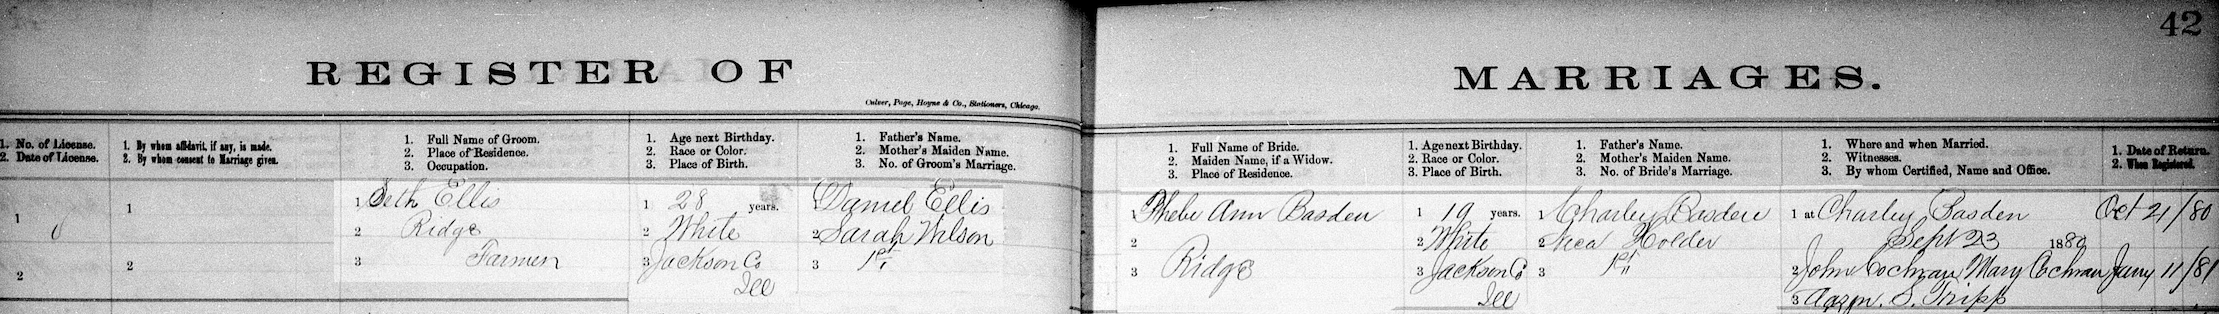 42
REGISTER OF MARRIAGES.
Culver, Page, Hoyne & Co., Stationers, Chicago.
1. No. of License.
2. Date of License.
1. By whom affidavit, if any, is made.
2. By whom consent to Marriage given.
1. Full Name of Groom.
2. Place of Residence.
3. Occupation.
1. Age next Birthday.
2. Race or Color.
3. Place of Birth.
1. Father's Name.
2. Mother's Maiden Name.
3. No. of Groom's Marriage.
1. Full Name of Bride.
2. Maiden Name, if a Widow.
3. Place of Residence.
1. Age next Birthday.
2. Race or Color.
3. Place of Birth.
1. Father's Name.
2. Mother's Maiden Name.
3. No. of Bride's Marriage.
1. Where and when Married.
2. Witnesses.
3. By whom Certified, Name and Office.
1. Date of Return.
2. When Registered.
1
2
1
2
1 Seth Ellis
2 Ridge
3 Farmer
1 28 years.
2 White
3 Jackson Co
Ill
1 Daniel Ellis
2 Sarah Wilson
3 1st
1 Phebe Ann Basden
2
3 Ridge
1 19 years.
2 White
3 Jackson Co
Ill
1 Charley Basden
2 Holder
3 1st
1 at Charley Basden
Sept 23 1880
2 John Cochran Mary Cochran
3 S. Tripp
Oct 21/80
Jany 11/81